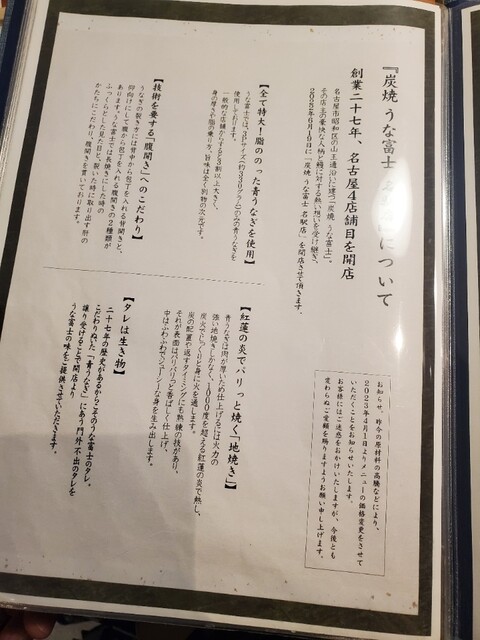 『炭焼 うな富士 名駅店』について
創業二十七年、名古屋4店舗目を開店
名古屋市昭和区の山王通沿いに建つ「炭焼 うな富士」。
その店主の豪快な人柄と鰻に対する熱い想いを受け継ぎ、
2022年6月10日に「炭焼 うな富士 名駅店」を開店させて頂きます。
お知らせ、昨今の原材料の高騰などにより、
2023年4月1日よりメニューの価格変更をさせて
いただくことをお知らせいたします。
お客様にはご迷惑をおかけいたしますが、今後とも
変わらぬご愛顧を賜りますようお願い申し上げます。
【全て特大！脂ののった青うなぎを使用】
うな富士では、3Pサイズ(約330グラム)のみの青うなぎを
使用しております。
一般的な店舗からすると3割以上大きく、
身の厚さや脂の乗り方、旨味は全く別物の次元です。
【技術を要する「腹開き」へのこだわり】
うなぎの裂き方には背中から包丁を入れる背開きと、
仰向けにして腹から包丁を入れる腹開きの2種類が
あります。うな富士では長焼きにした時の
ふっくらとした見た目と、裂いた時に取り出す肝の
かたちにこだわり、腹開きを貫いております。
【紅蓮の炎でパリっと焼く「地焼き」】
青うなぎは肉が厚いため仕上げるには火力の
強い地焼きしかなく、1000度を超える紅蓮の炎で熱し、
炭火でじっくりと身に火を通します。
炭の配置や返すタイミングにも熟練の技があり、
それが表面はパリパリっと香ばしく仕上げ、
中はふわふわでジューシーな身を生み出します。
【タレは生き物】
二十七年の歴史があるからこそのうな富士のタレ。
こだわりぬいた「青うなぎ」にあう門外不出のタレを
譲り受けることで開店より
うな富士の味をご提供させていただきます。